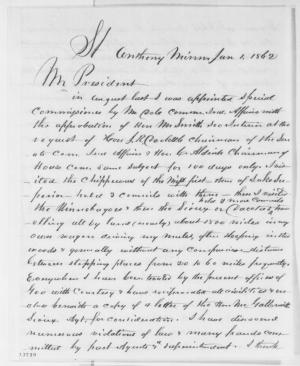 St Anthony Minn Jan 1, 1862
Mr President
in August last I was appointed special
Commissioner by Mr Dole Comm. Ind. Affairs with
the approbation of Hon Mr Smith Sec Interior at the
request of Hon J R Doolittle Chairman of the
Com. Ind Affairs & Hon C Aldrich Chairman of
House Com. same subject for 100 days only. I vis-
ited the Chippewas of the
held 2 councils with them then I visited
the Winnebagoes & then the Sioux or
all by land (nearly) about 1800 miles in my
own driving my mules, often sleeping in the
woods & generally without any companion. distance
between stopping places from 20 to 60 miles frequently.
Everywhere I have been treated by the present officers of
Gov with Courtesy & have
a copy of a letter of the Hon Mr Galbraith
Sioux Agt. for consideration. I have discovered
numerous violations of law & many frauds com-
mitted by past Agents & a superintendent. I think